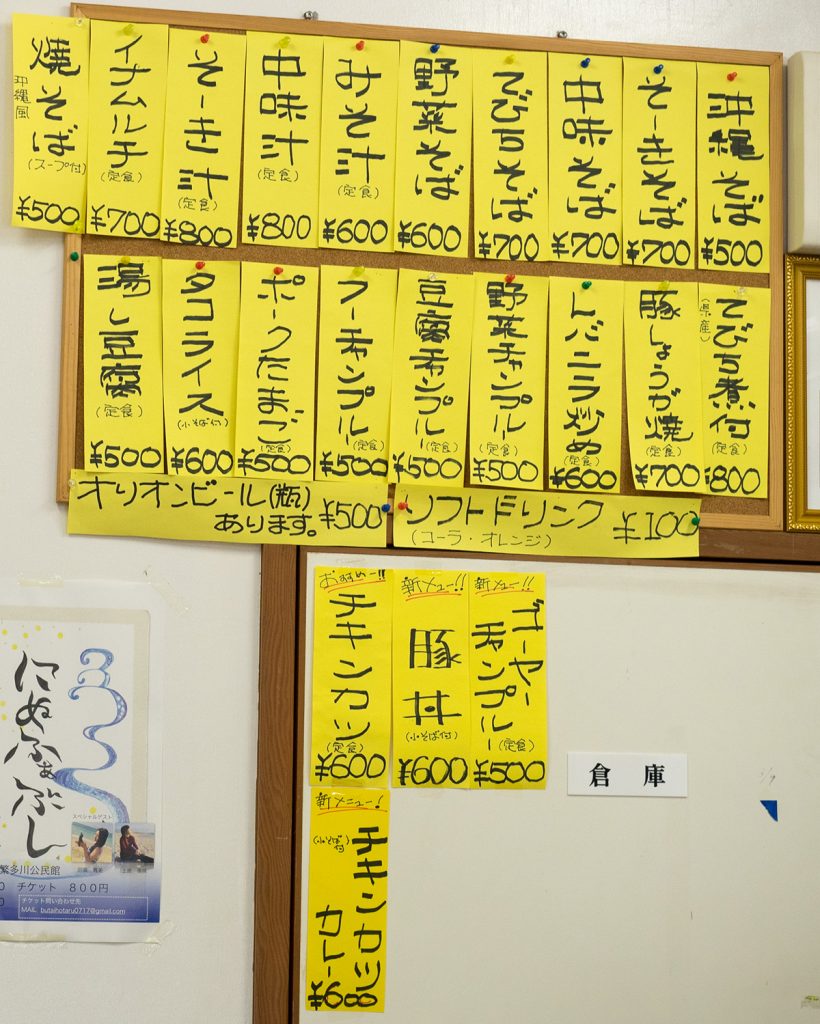 沖縄そば
¥500
そーきそば
¥700
中味そば
¥700
てびちそば
¥700
野菜そば
¥600
みそ汁
(定食)
¥600
中味汁
(定食)
¥800
そーき汁
(定食)
¥800
イナムルチ
(定食)
¥700
焼そば
沖縄風
(スープ付)
¥500
てびち煮付
(県産)
(定食)
¥800
豚しょうが焼
(定食)
¥700
んバニラ炒め
(定食)
¥600
野菜チャンプルー
(定食)
¥500
豆腐チャンプルー
(定食)
¥500
フーチャンプルー
(定食)
¥500
ポークたまご
(定食)
¥500
タコライス
(小そば付)
¥600
湯し豆腐
(定食)
¥500
オリオンビール(瓶)
あります。 ¥500
ソフトドリンク
(コーラ・オレンジ)
¥100
新メニュー!!
ゴーヤー
チャンプルー
(定食)
¥500
新メニュー!!
豚丼
(小そば付)
¥600
おすすめー!!
チキンカツ
(定食)
¥600
新メニュー!
チキンカツ
カレー
(小そば付)
¥600
倉庫
にぬふぁぶし
スペシャルゲスト
繁多川公民館
チケット 800円
チケット問い合わせ先
MAIL butaihotaru0717@gmail.com